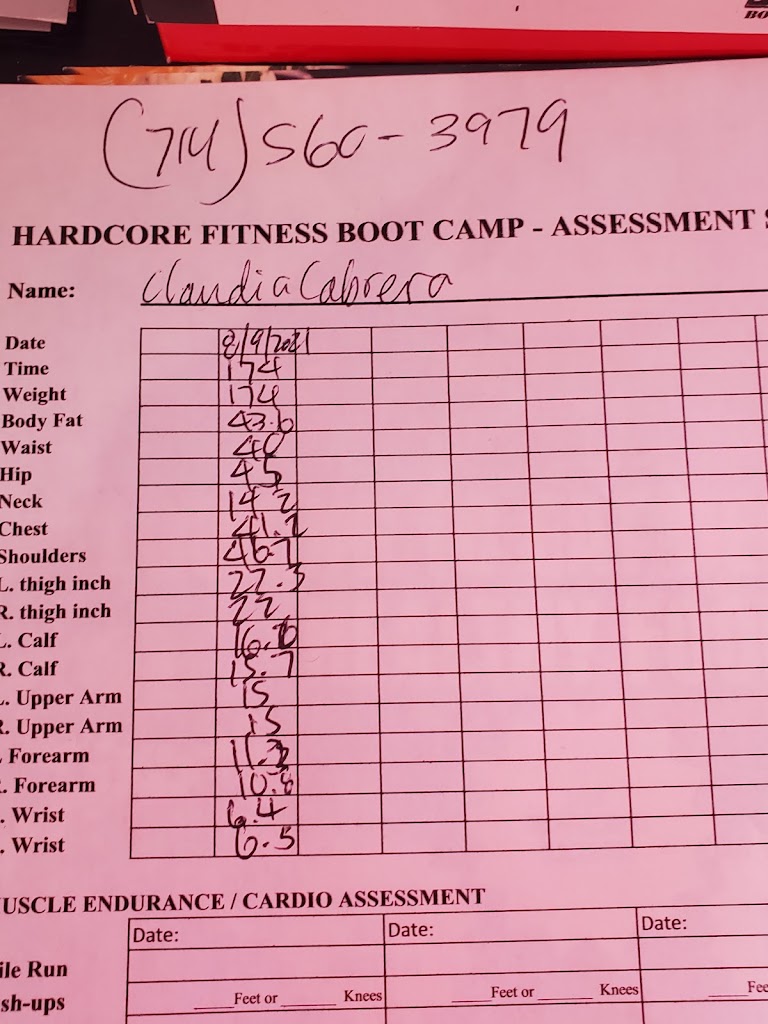 BO
(714) 560-3979
HARDCORE FITNESS BOOT CAMP - ASSESSMENT
Name: Claudia Cabrera
Date 8/9/2021
Time 174
Weight 174
Body Fat 43.6
Waist 40
Hip 45
Neck 14.2
Chest 41.2
Shoulders 46.7
L. thigh inch 27.3
R. thigh inch 27
L. Calf 16.6
R. Calf 15.7
L. Upper Arm 15
R. Upper Arm 15
Forearm 11.2
R. Forearm 10.8
. Wrist 6.4
. Wrist 6.5
USCLE ENDURANCE / CARDIO ASSESSMENT
Date: Date: Date:
ile Run
sh-ups ____Feet or ______ Knees ____Feet or ______ Knees ____Fee